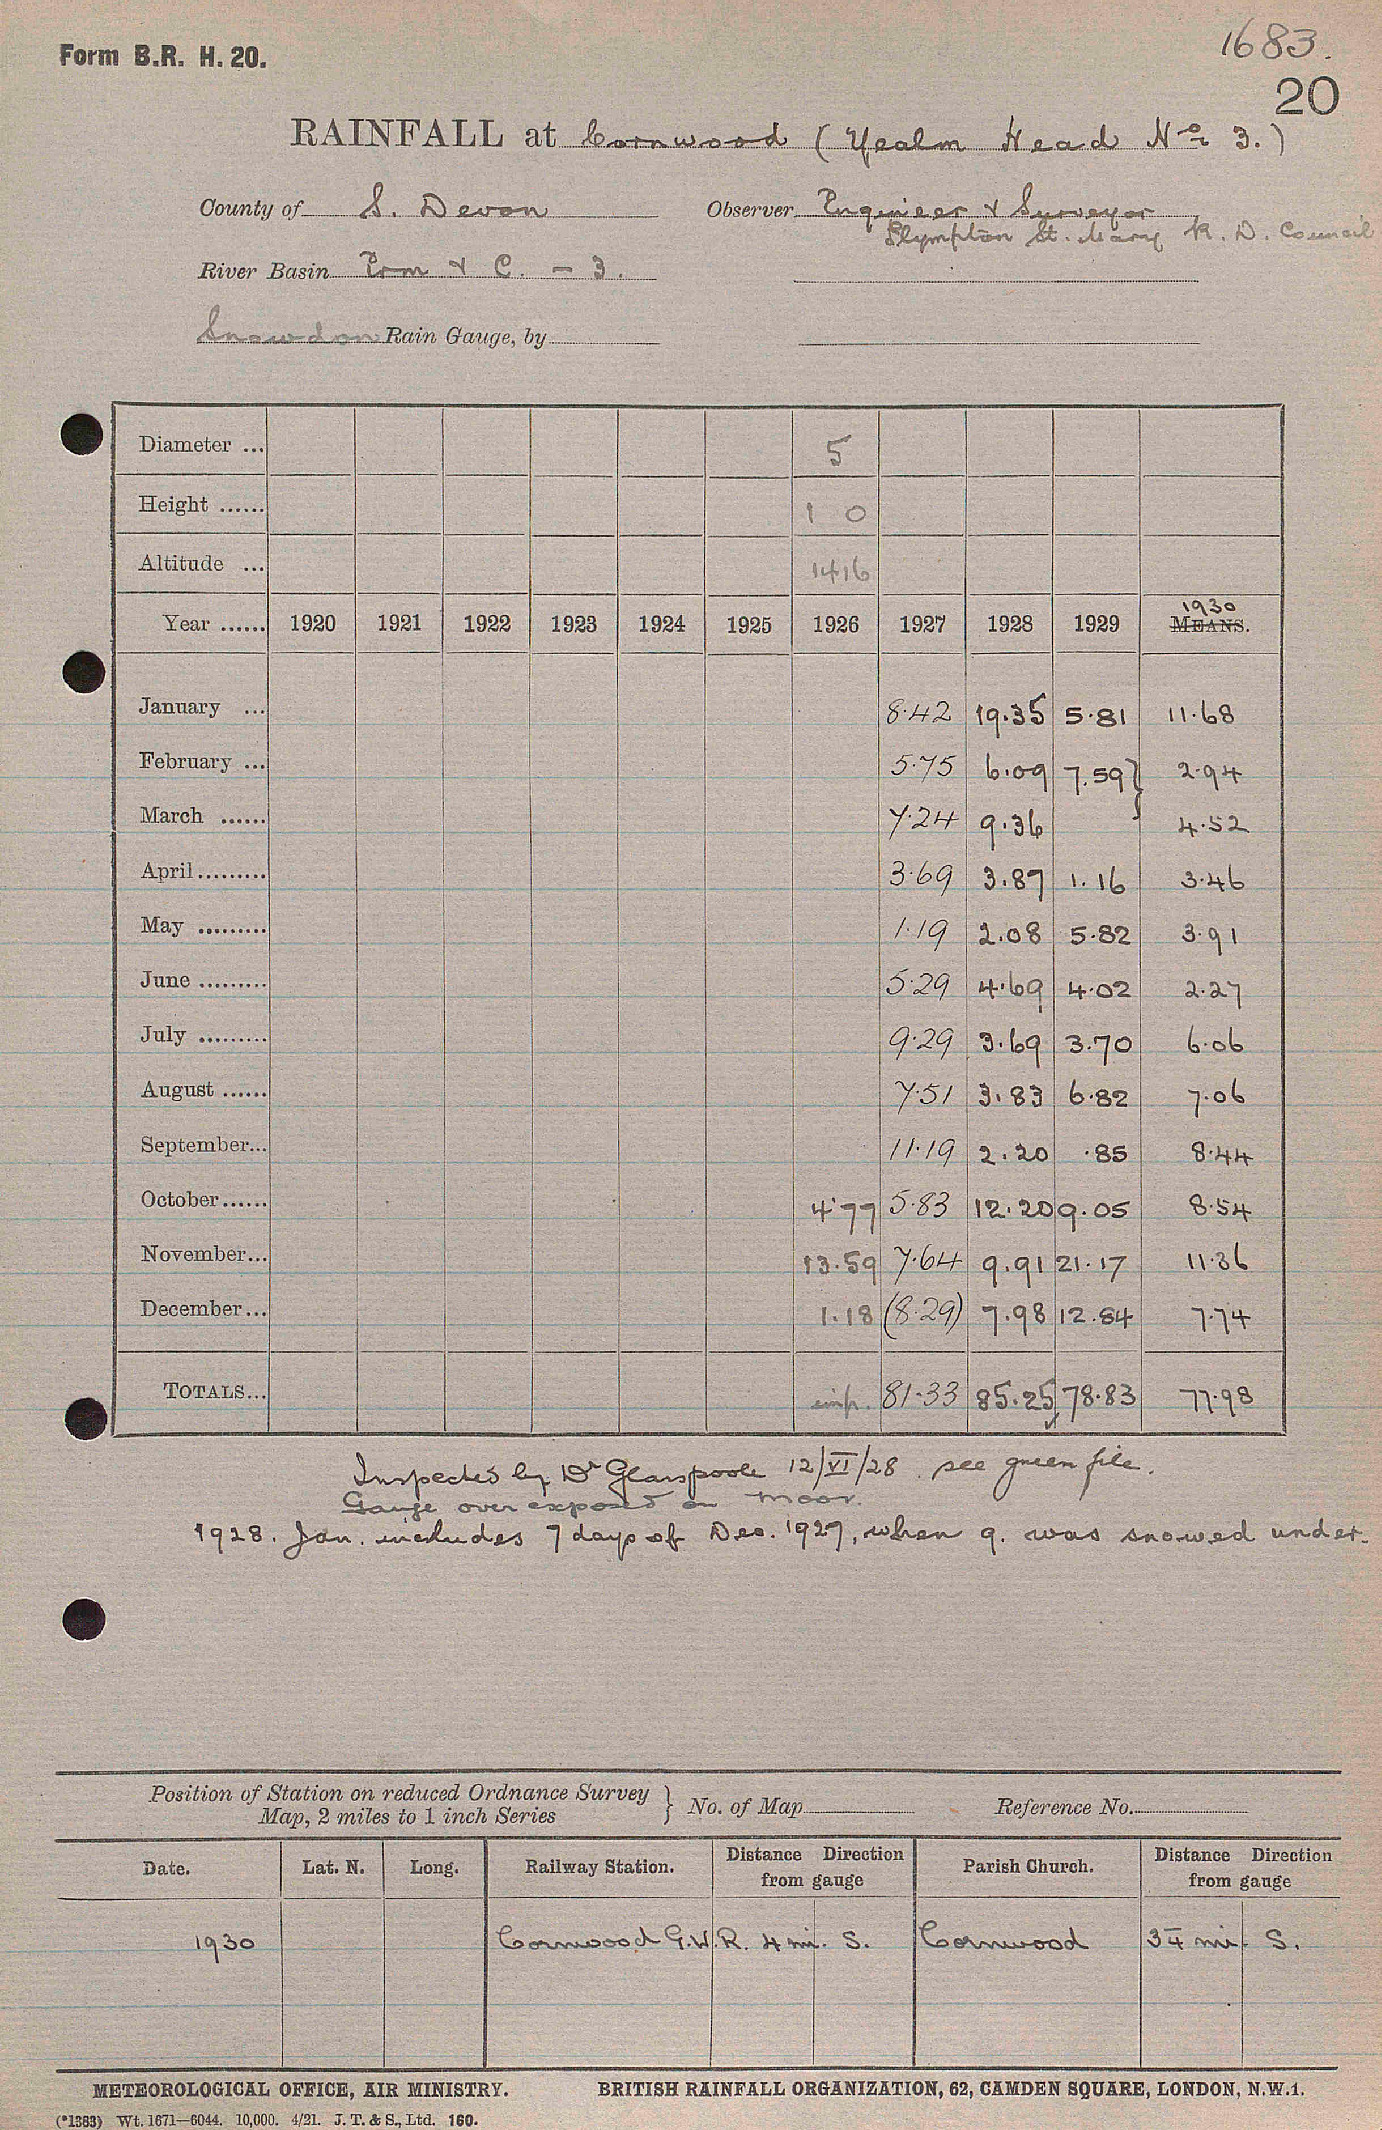 Form B.R. H. 20.
1683.
20
RAINFALL at Cornwood (Yealm Head No 3.)
County of S. Devon Observer Engineer & Surveyor
Plympton St. Mary R. D. Council
River Basin Erm & C. – 3.
Snowdon Rain Gauge, by
Diameter ... 5
Height ...... 1 0
Altitude ... 1416
Year ...... 1920 1921 1922 1923 1924 1925 1926 1927 1928 1929 1930 MEANS.
January ... 8.42 19.35 5.81 11.68
February ... 5.75 6.09 7.59 } 2.94
March ...... 7.24 9.36 4.52
April ......... 3.69 3.87 1.16 3.46
May ......... 1.19 2.08 5.82 3.91
June ......... 5.29 4.69 4.02 2.27
July ......... 9.29 3.69 3.70 6.06
August ...... 7.51 3.83 6.82 7.06
September... 11.19 2.20 .85 8.44
October...... 4.77 5.83 12.20 9.05 8.54
November... 13.59 7.64 9.91 21.17 11.36
December... 1.18 (8.29) 7.98 12.84 7.74
TOTALS... imp. 81.33 85.25 78.83 77.98
Inspected by Dr Glasspoole 12/VI/28. see green file.
Gauge over exposed on moor.
1928. Jan. includes 7 days of Dec. 1927, when g. was snowed under.
Position of Station on reduced Ordnance Survey
Map, 2 miles to 1 inch Series } No. of Map Reference No.
Date. Lat. N. Long. Railway Station. Distance Direction from gauge Parish Church. Distance Direction from gauge
1930 Cornwood G.W.R. 4 mi. S. Cornwood 3¼ mi. S.
METEOROLOGICAL OFFICE, AIR MINISTRY. BRITISH RAINFALL ORGANIZATION, 62, CAMDEN SQUARE, LONDON, N.W.1.
(*1383) Wt. 1671—6044. 10,000. 4/21. J. T. & S., Ltd. 160.